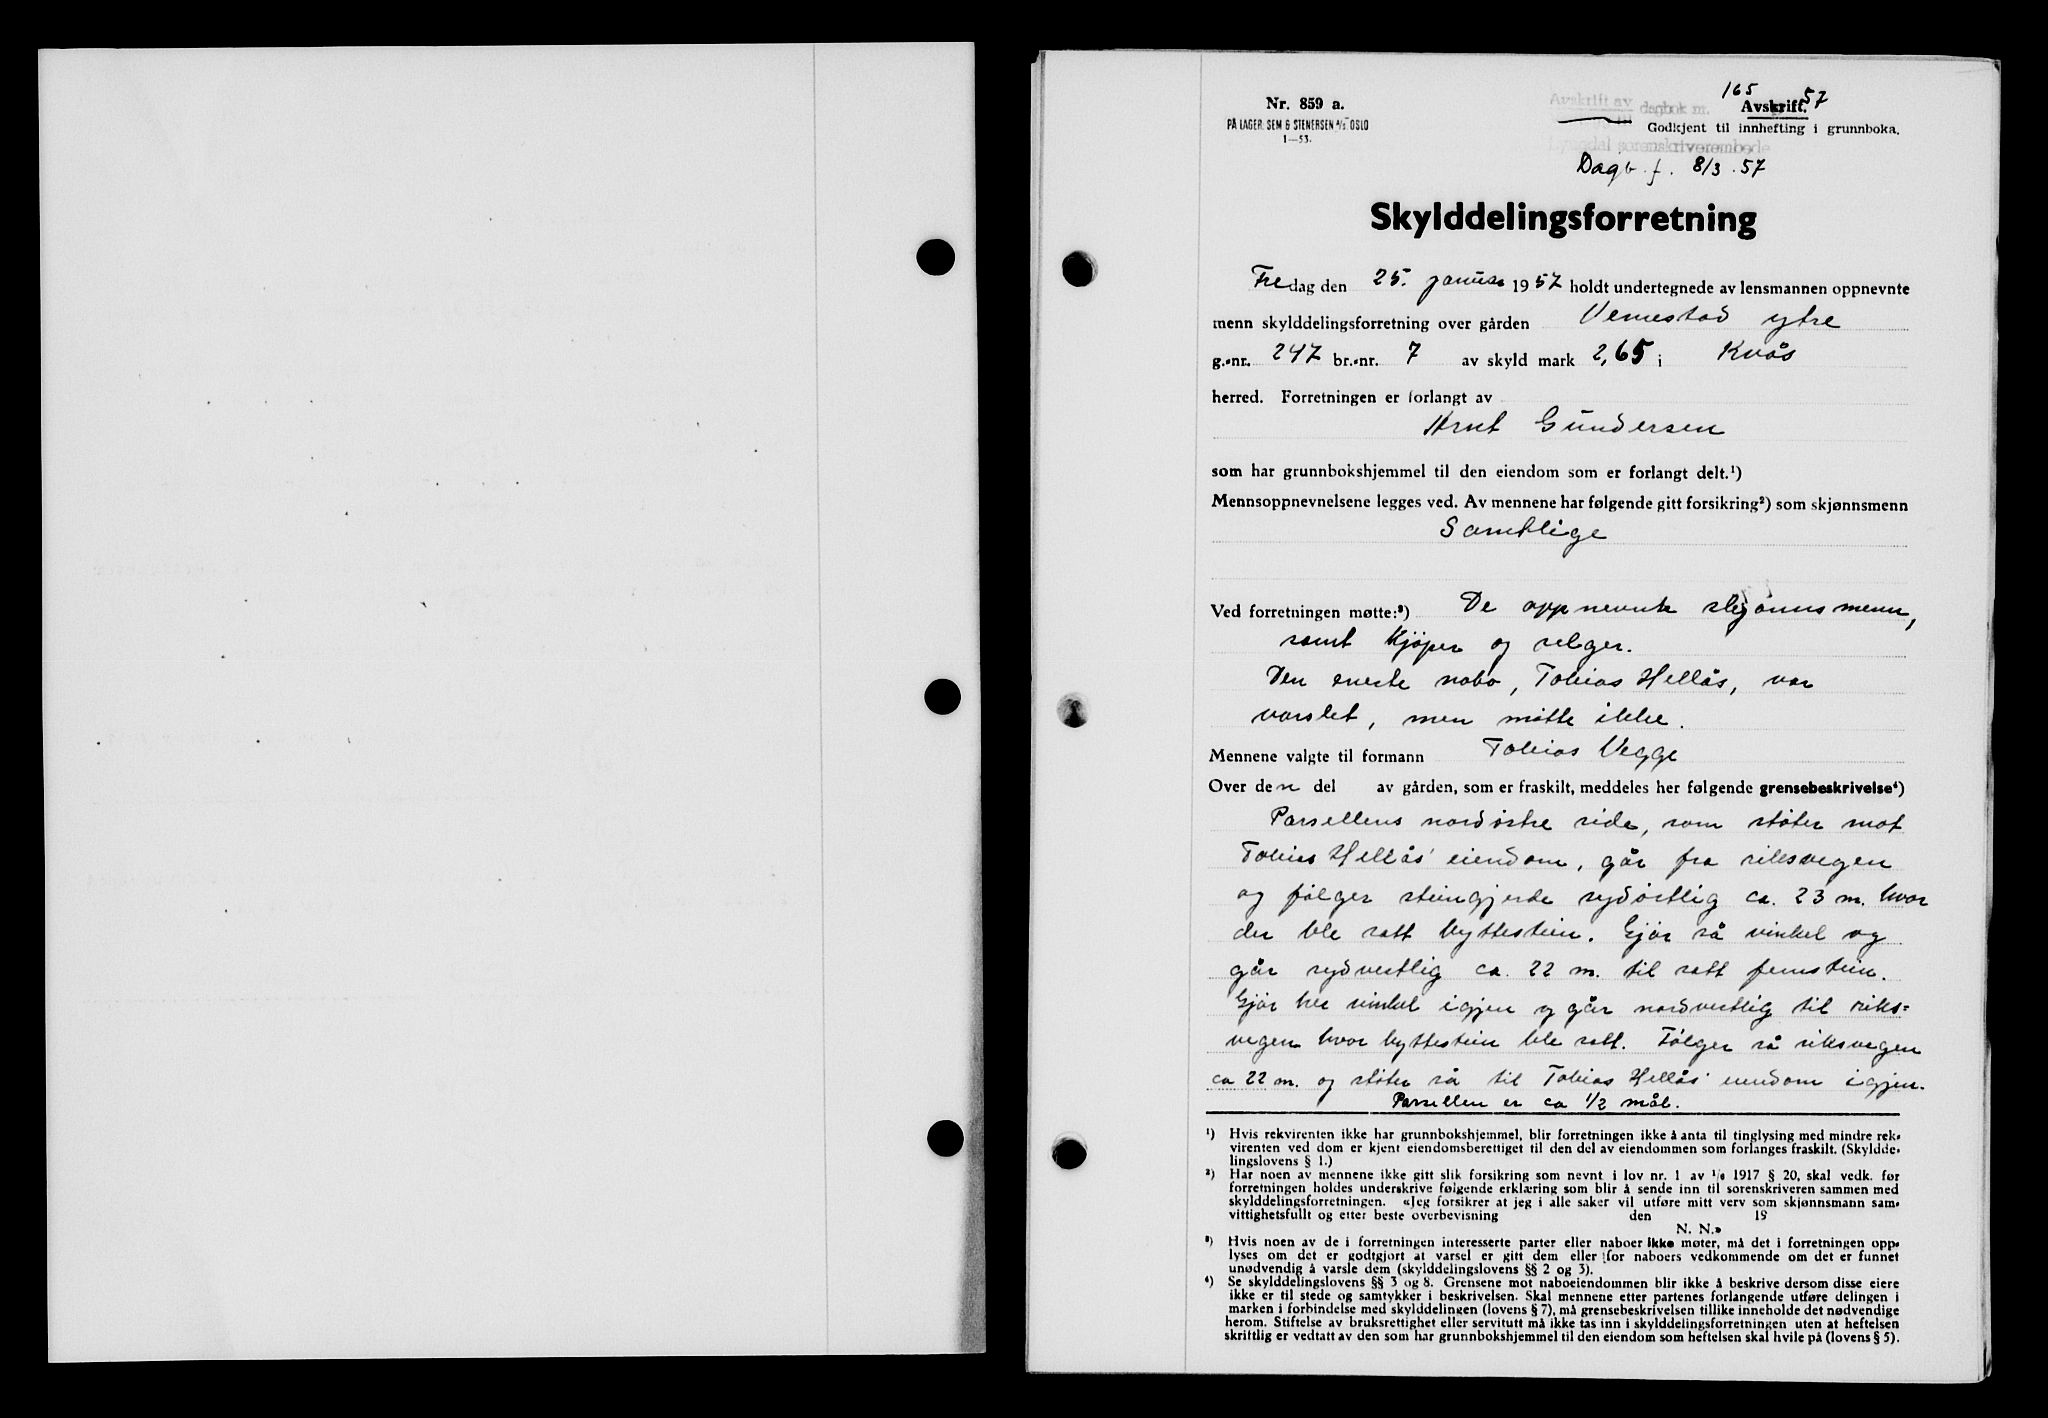 Nr. 859 a.
PÅ LAGER. SEM & STENERSEN A/S OSLO
1—53.
Avskrift av dagbok nr. 165 57
Avskrift.
Godkjent til innhefting i grunnboka.
Lyngdal sorenskriverembede
Dagb. f. 8/3 . 57
Skylddelingsforretning
Fredag den 25. januar 1957 holdt undertegnede av lensmannen oppnevnte
menn skylddelingsforretning over gården Vemestad ytre
g.-nr. 247 br.-nr. 7 av skyld mark 2,65 i Kvås
herred. Forretningen er forlangt av
Arnt Gundersen
som har grunnbokshjemmel til den eiendom som er forlangt delt.¹)
Mennsoppnevnelsene legges ved. Av mennene har følgende gitt forsikring²) som skjønnsmenn
Samtlige
Ved forretningen møtte:³) De oppnevnte skjønnsmenn,
samt kjøper og selger.
Den eneste nabo, Tobias Hellås, var
varslet, men møtte ikke.
Mennene valgte til formann Tobias Vegge
Over den del av gården, som er fraskilt, meddeles her følgende grensebeskrivelse⁴)
Parsellens nordøstre side, som støter mot
Tobias Hellås' eiendom, går fra riksvegen
og følger steingjerde sydøstlig ca. 23 m. hvor
der ble satt byttestein. Gjør så vinkel og
går sydvestlig ca. 22 m. til satt femstein.
Gjør her vinkel igjen og går nordvestlig til riks=
vegen hvor byttestein ble satt. Følger så riksvegen
ca 22 m. og støter så til Tobias Hellås' eiendom igjen.
Parsellen er ca 1/2 mål.
¹) Hvis rekvirenten ikke har grunnbokshjemmel, blir forretningen ikke å anta til tinglysing med mindre rek-
virenten ved dom er kjent eiendomsberettiget til den del av eiendommen som forlanges fraskilt. (Skyldde-
lingslovens § 1.)
²) Har noen av mennene ikke gitt slik forsikring som nevnt i lov nr. 1 av 1/6 1917 § 20, skal vedk. før
forretningen holdes underskrive følgende erklæring som blir å sende inn til sorenskriveren sammen med
skylddelingsforretningen. «Jeg forsikrer at jeg i alle saker vil utføre mitt verv som skjønnsmann sam-
vittighetsfullt og etter beste overbevisning den 19
N. N.»
³) Hvis noen av de i forretningen interesserte parter eller naboer ikke møter, må det i forretningen opp-
lyses om det er godtgjort at varsel er gitt dem eller for naboers vedkommende om det er funnet
unødvendig å varsle dem (skylddelingslovens §§ 2 og 3).
⁴) Se skylddelingslovens §§ 3 og 8. Grensene mot naboeiendommen blir ikke å beskrive dersom disse eiere
ikke er til stede og samtykker i beskrivelsen. Skal mennene etter partenes forlangende utføre delingen i
marken i forbindelse med skylddelingen (lovens § 7), må grensebeskrivelsen tillike inneholde det nødvendige
herom. Stiftelse av bruksrettighet eller servitutt må ikke tas inn i skylddelingsforretningen uten at heftelsen
skriftlig er vedtatt av den som har grunnbokshjemmel til den eiendom som heftelsen skal hvile på (lovens § 5).